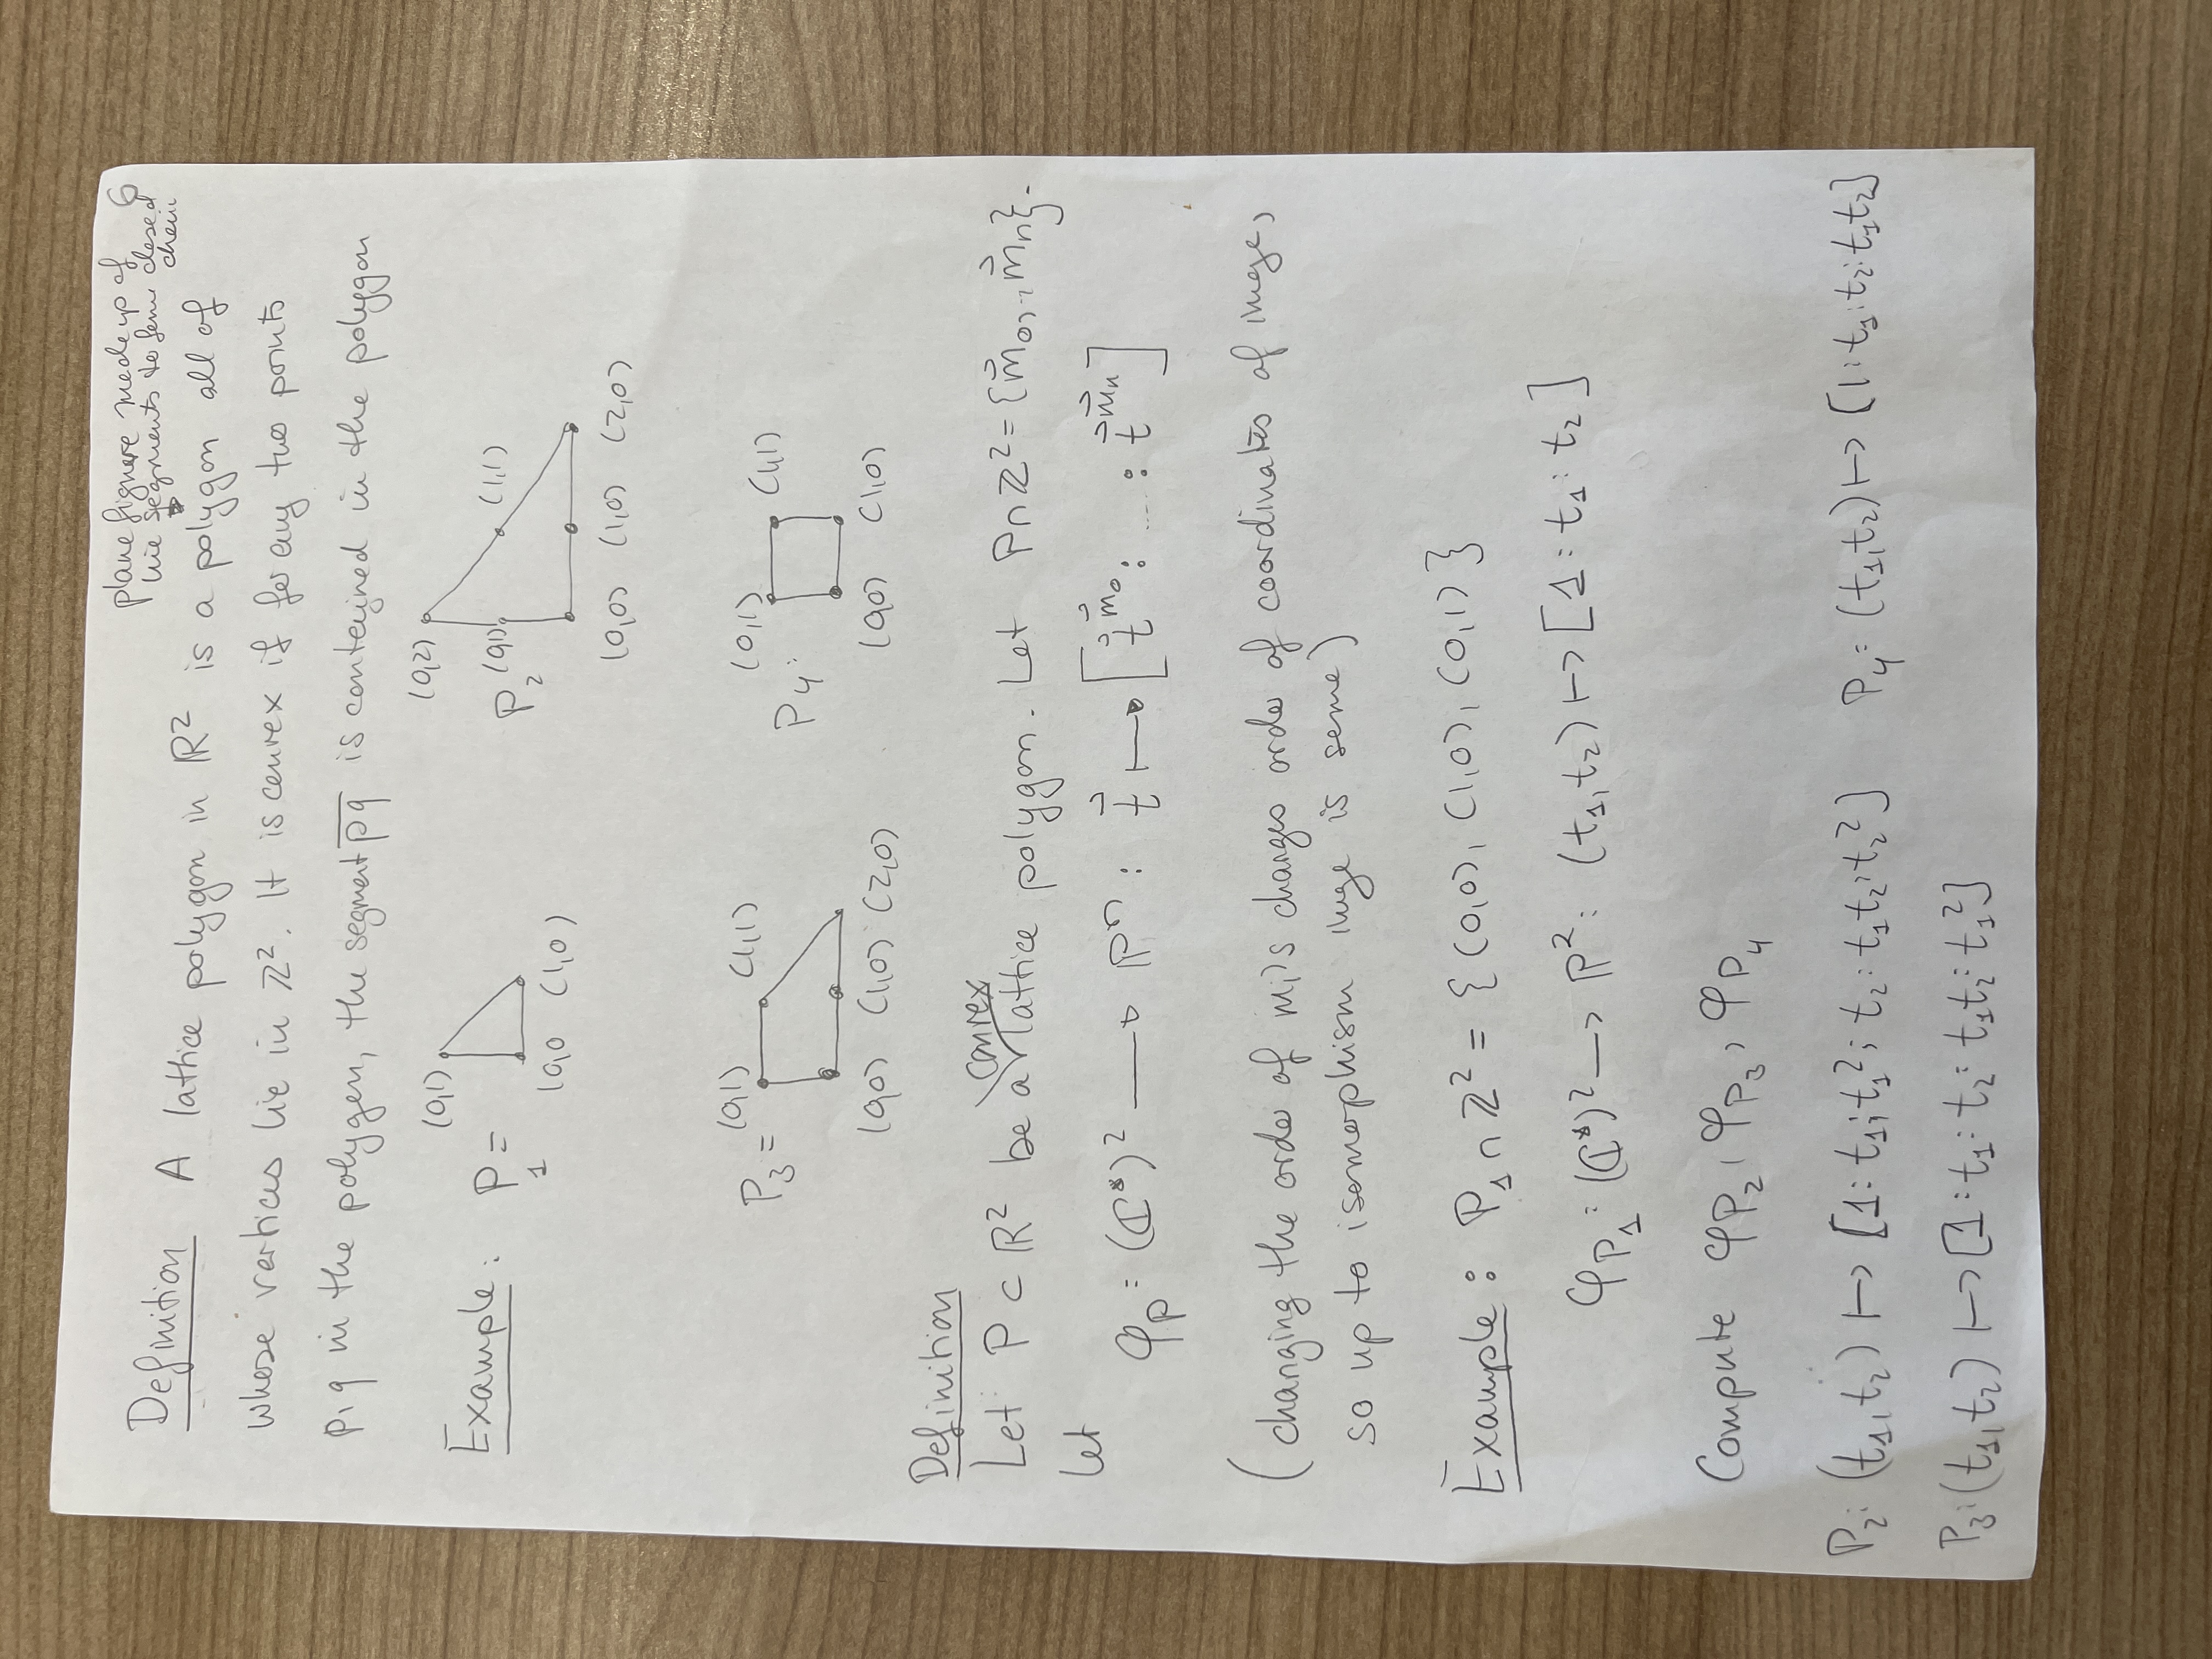 plane figure made up of 6
line segments to form closed
chain
Definition A lattice polygon in ℝ² is a polygon all of
whose vertices lie in ℤ². It is convex if for any two points
p, q in the polygon, the segment p̅q̅ is contained in the polygon
(0,1) (0,2)
Example: P₁ = P₂ (0,1) (1,1)
(0,0 (1,0)
(0,0) (1,0) (2,0)
P₃ = (0,1) (1,1) P₄: (0,1) (1,1)
(0,0) (1,0) (2,0) (0,0) (1,0)
Definition
convex
Let P ⊂ ℝ² be a lattice polygon. Let P∩ℤ² = {m⃗₀,..,m⃗ₙ}.
Let
φ_P: (ℂ*)² → ℙⁿ: t⃗ ↦ [t⃗^m⃗₀: ... : t⃗^m⃗ₙ]
(changing the order of mᵢ's changes order of coordinates of image,
so up to isomorphism image is same)
Example: P₁∩ℤ² = {(0,0), (1,0), (0,1)}
φ_P₁: (ℂ*)² → ℙ²: (t₁,t₂) ↦ [1:t₁:t₂]
Compute φ_P₂, φ_P₃, φ_P₄
P₂: (t₁,t₂) ↦ [1:t₁:t₁²:t₂:t₁t₂:t₂²] P₄: (t₁,t₂) ↦ [1:t₁:t₂:t₁t₂]
P₃: (t₁,t₂) ↦ [1:t₁:t₂:t₁t₂:t₁²]